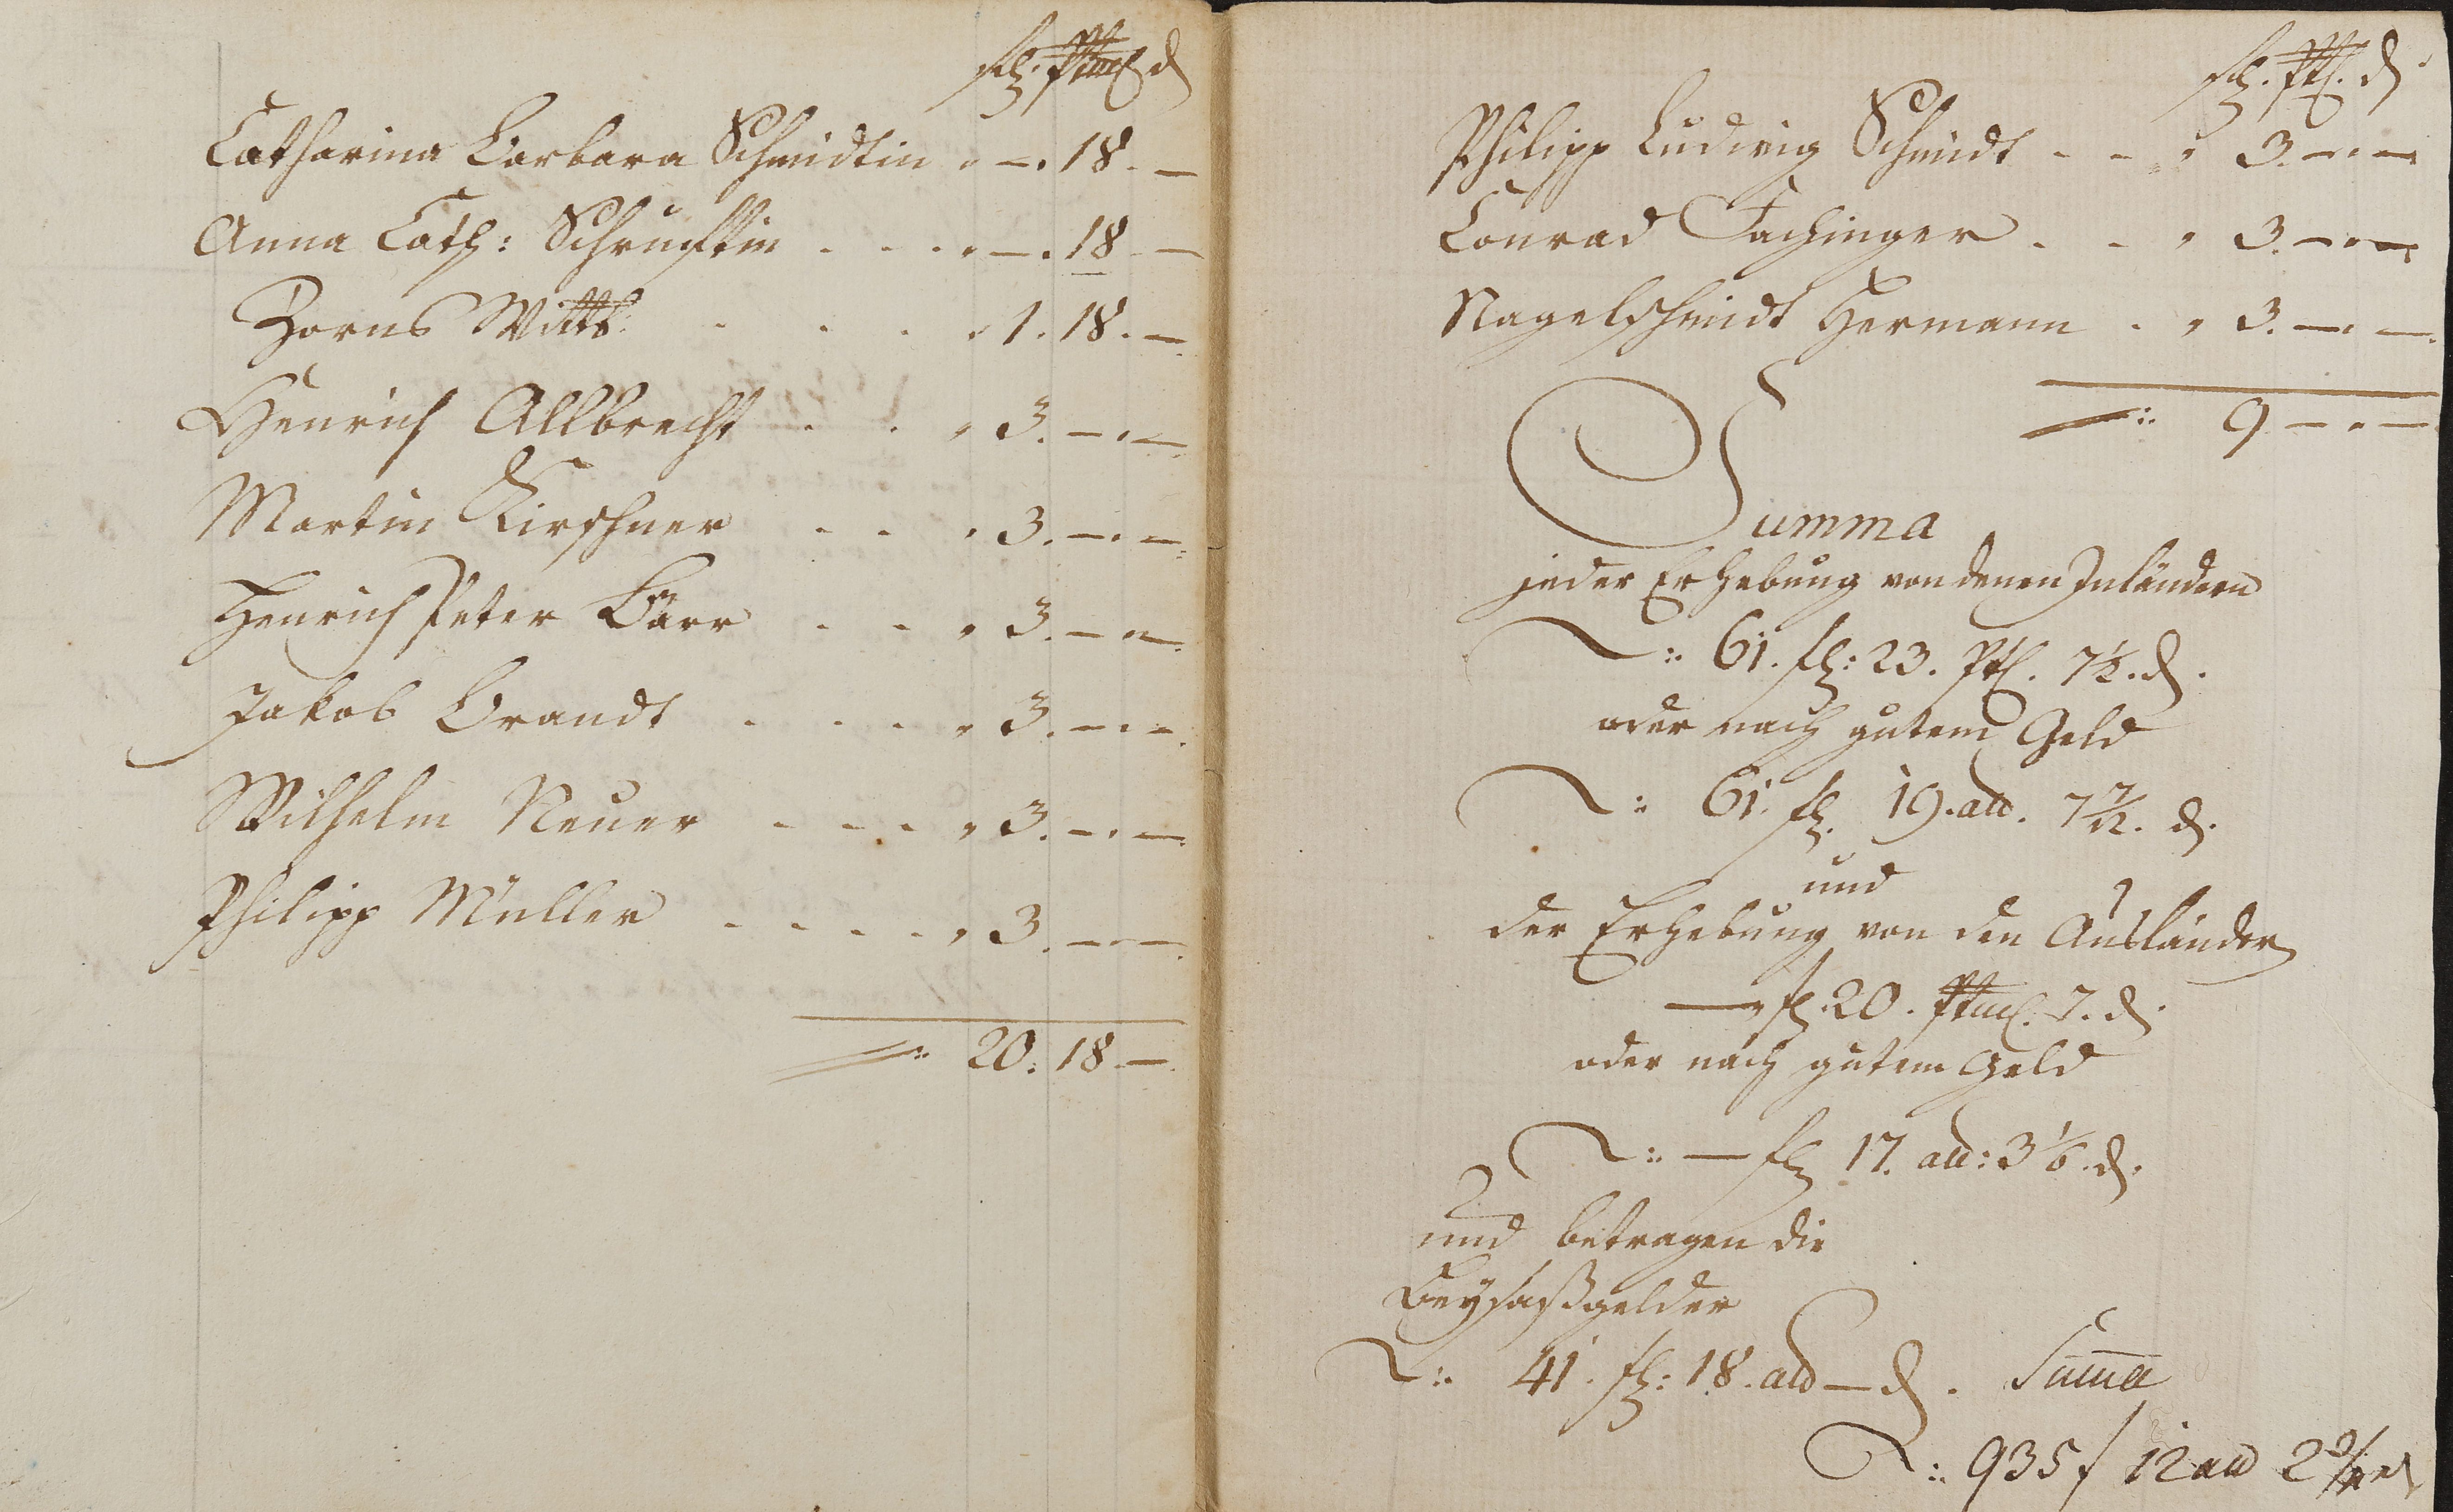 fl. Ptmß d
Catharina Barbara Schmidtin . — . 18. —
Anna Cath: . . . . — . 18 —
Zorns Wittb. . . . . 1. 18. —
Henrich Allbrecht . . . 3. — . —
Martin Kirschner . . . 3. — . —
Henrich Peter Barr . . . 3. — . —
Jakob Brandt . . . . 3. — . —
Wilhelm Neuer . . . . 3. — . —
Philipp Müller . . . . . 3. — . —
20: 18 —
fl. Ptß. d.
Philipp Ludwig Schmidt - - . 3. — . —
Conrad Fachinger . - . 3. — . —
Nagelschmidt Hermann . . 3. — . —
9 — . —
Summa
jeder Erhebung von denen Inländern
61. fl: 23. Ptß. 7½. d.
oder nach gutem Geld
61. fl. 19. alb. 7 7/12. d.
und
der Erhebung von den Ausländer
— fl. 20. Ptmß. 7. d.
oder nach gutem Geld
— fl 17. alb: 3 1/6. d.
und betragen die
Beysaßgelder
41. fl: 18. alb — d. Summa
935 f 12 alb